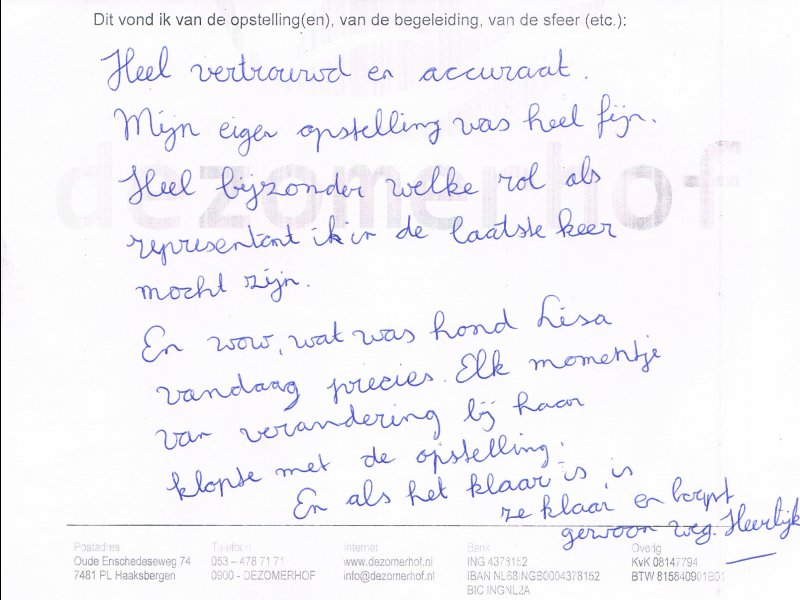 Dit vond ik van de opstelling(en), van de begeleiding, van de sfeer (etc.):
Heel vertrouwd en accuraat.
Mijn eigen opstelling was heel fijn.
dezomerhof
Heel bijzonder welke rol als
representant ik in de laatste keer
mocht zijn.
En wow, wat was hond Lisa
vandaag precies. Elk momentje
van verandering bij haar
klopte met de opstelling.
En als het klaar is, is
ze klaar en loopt
gewoon weg. Heerlijk
Postadres Telefoon Internet Bank Overig
Oude Enschedeseweg 74 053 – 478 71 71 www.dezomerhof.nl ING 4378152 KvK 08147794
7481 PL Haaksbergen 0900 - DEZOMERHOF info@dezomerhof.nl IBAN NL68INGB0004378152 BTW 815840901B01
BIC INGNL2A